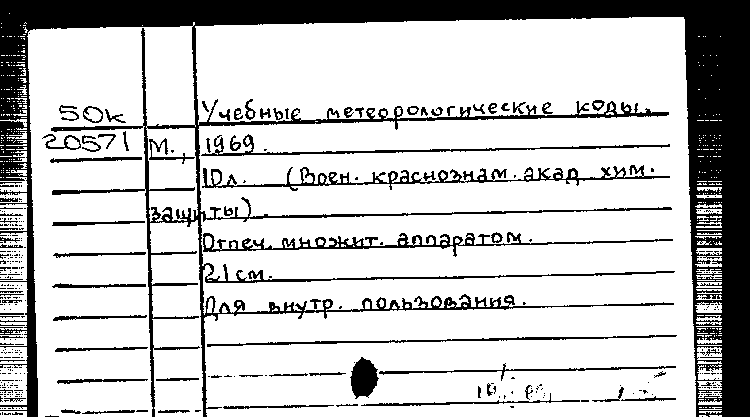 50к Учебные метеорологические коды.
20571 М., 1969.
10л. (Воен. краснознам. акад хим.
защиты).
Отпеч. множит. аппаратом.
21 см.
Для внутр. пользования.